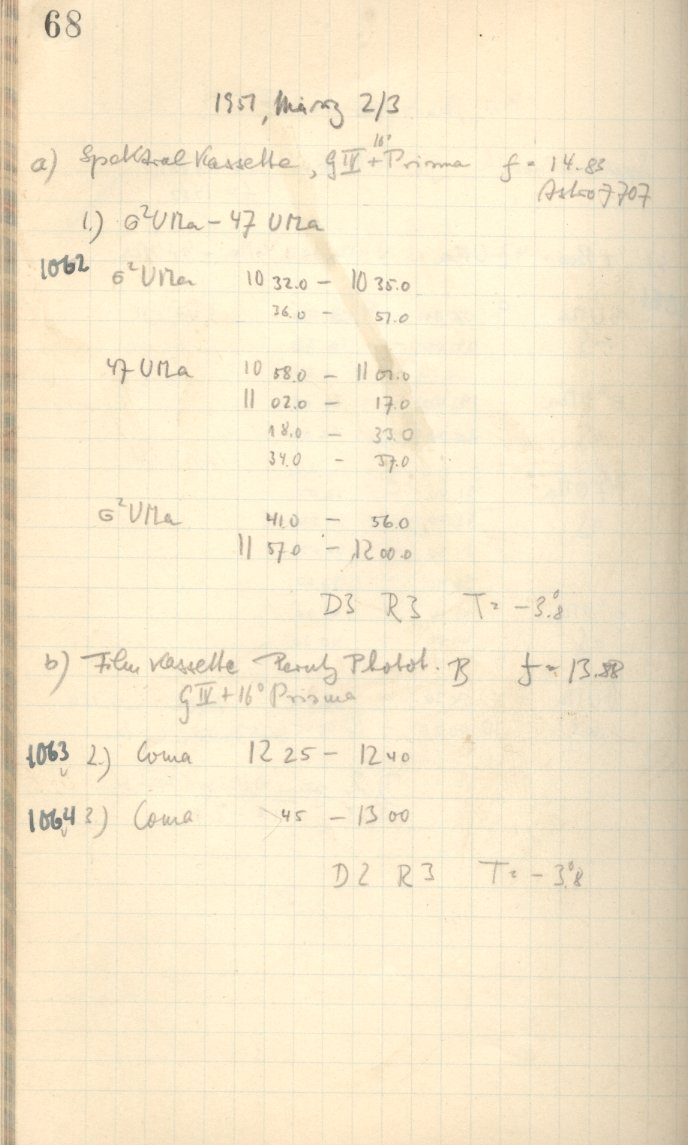 68
1951, März 2/3
a) Spektralkassette, GIV + 16° Prisma f = 14.83
Astro 7707
1.) σ²UMa - 47 UMa
1062 σ²UMa 10 32.0 - 10 35.0
36.0 - 51.0
47 UMa 10 58.0 - 11 01.0
11 02.0 - 17.0
18.0 - 33.0
34.0 - 37.0
σ²UMa 41.0 - 56.0
11 57.0 - 12 00.0
D3 R3 T = -3°.8
b) Filmkassette Perutz Photot. B f = 13.88
GIV + 16° Prisma
1063 2.) Coma 12 25 - 12 40
1064 3.) Coma 45 - 13 00
D2 R3 T = -3°.8